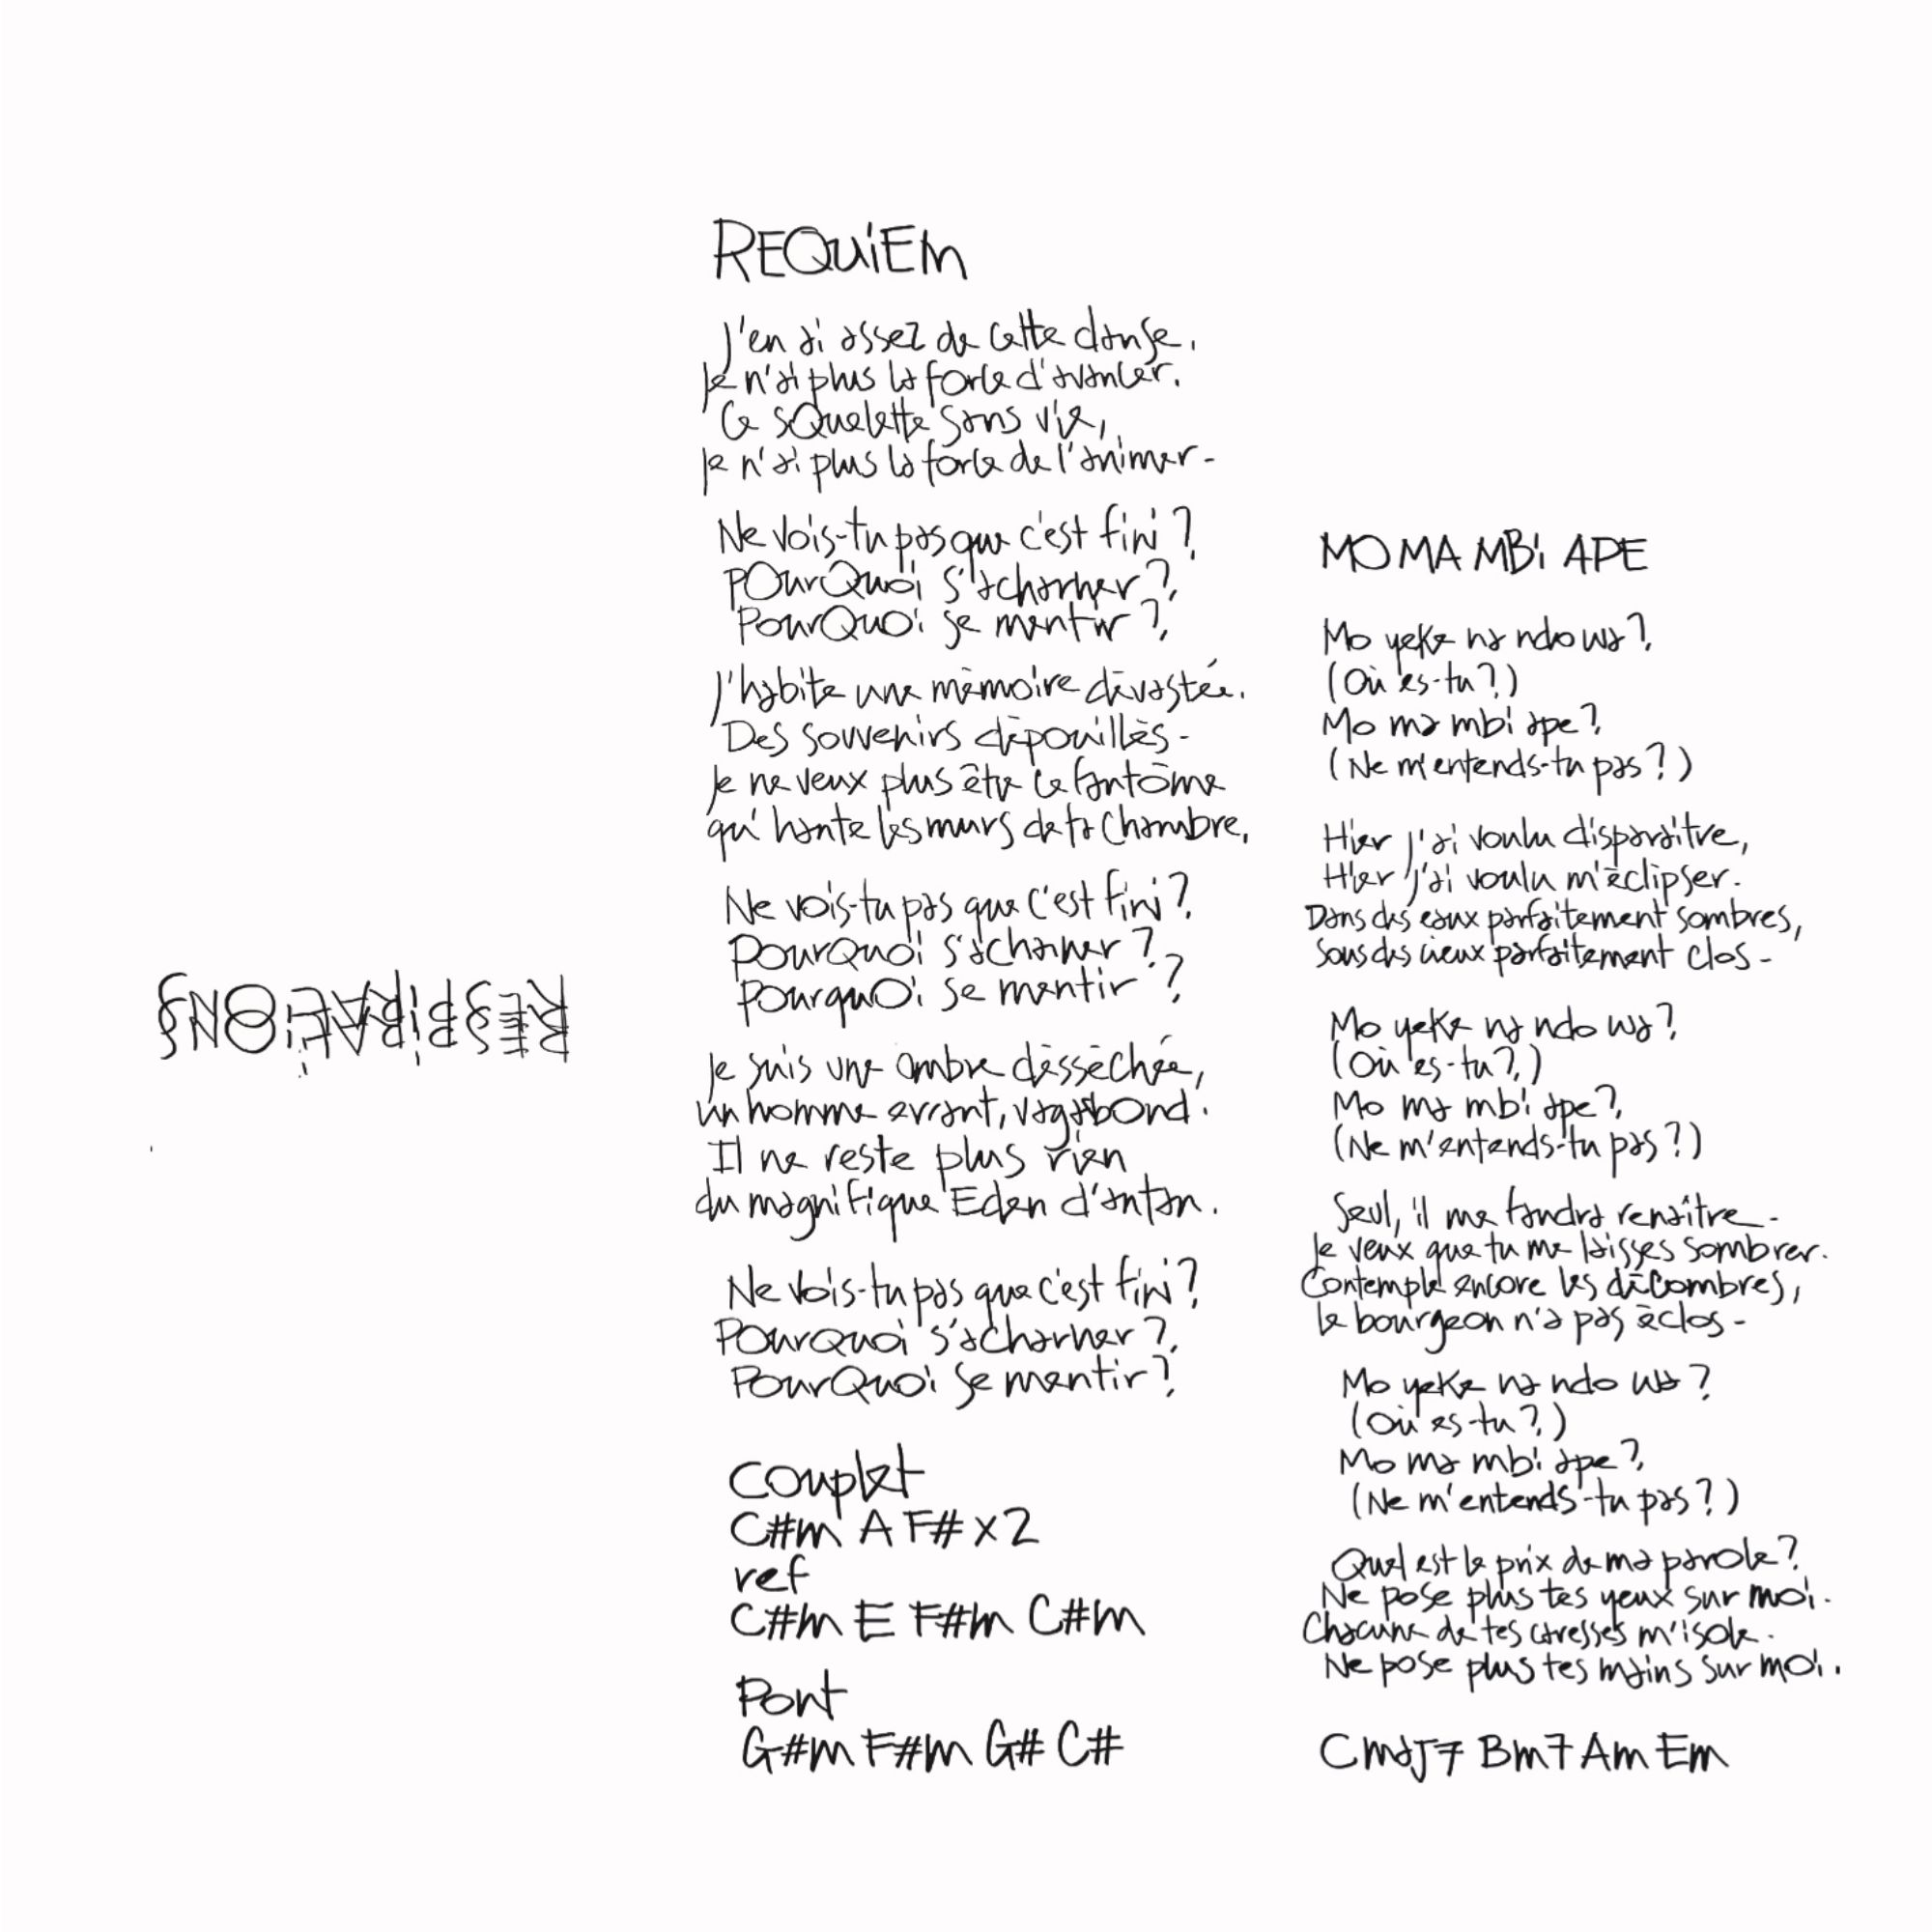 RESPIRATIONS
REQUiEM
J'en ai assez de cette danse.
Je n'ai plus la force d'avancer.
Ce sQuelette sans vie,
Je n'ai plus la force de l'animer-
Ne vois-tu pas que c'est fini ?
POurQuoi s'acharner ?
PourQuOi se mentir ?
J'habite une mémoire dévastée.
Des souvenirs dépouillés-
Je ne veux plus être ce fantôme
qui hante les murs de ta chambre.
Ne vois-tu pas que c'est fini ?
PourQuoi s'acharner ?
PourquOi se mentir ?
Je suis une ombre désséchée,
un homme errant, vagabond.
Il ne reste plus rien
du magnifique Eden d'antan.
Ne vois-tu pas que c'est fini ?
Pourquoi s'acharner ?
PourQuoi se mentir ?
Couplet
C#m A F# x2
ref
C#m E F#m C#m
Pont
G#m F#m G# C#
MO MA MBi APE
Mo yeke na ndo wa ?
(Où es-tu ?)
Mo ma mbi ape ?
(Ne m'entends-tu pas ?)
Hier j'ai voulu disparaître,
Hier j'ai voulu m'éclipser.
Dans des eaux parfaitement sombres,
Sous des cieux parfaitement clos-
Mo yeke na ndo wa ?
(Où es-tu ?)
Mo ma mbi ape ?
(Ne m'entends-tu pas ?)
Seul, il me faudra renaître-
Je veux que tu me laisses sombrer.
Contemple encore les décombres,
le bourgeon n'a pas éclos-
Mo yeke na ndo wa ?
(Où es-tu ?)
Mo ma mbi ape ?
(Ne m'entends-tu pas ?)
Quel est le prix de ma parole ?
Ne pose plus tes yeux sur moi.
Chacune de tes caresses m'isole.
Ne pose plus tes mains sur moi.
CmaJ7 Bm7 Am Em